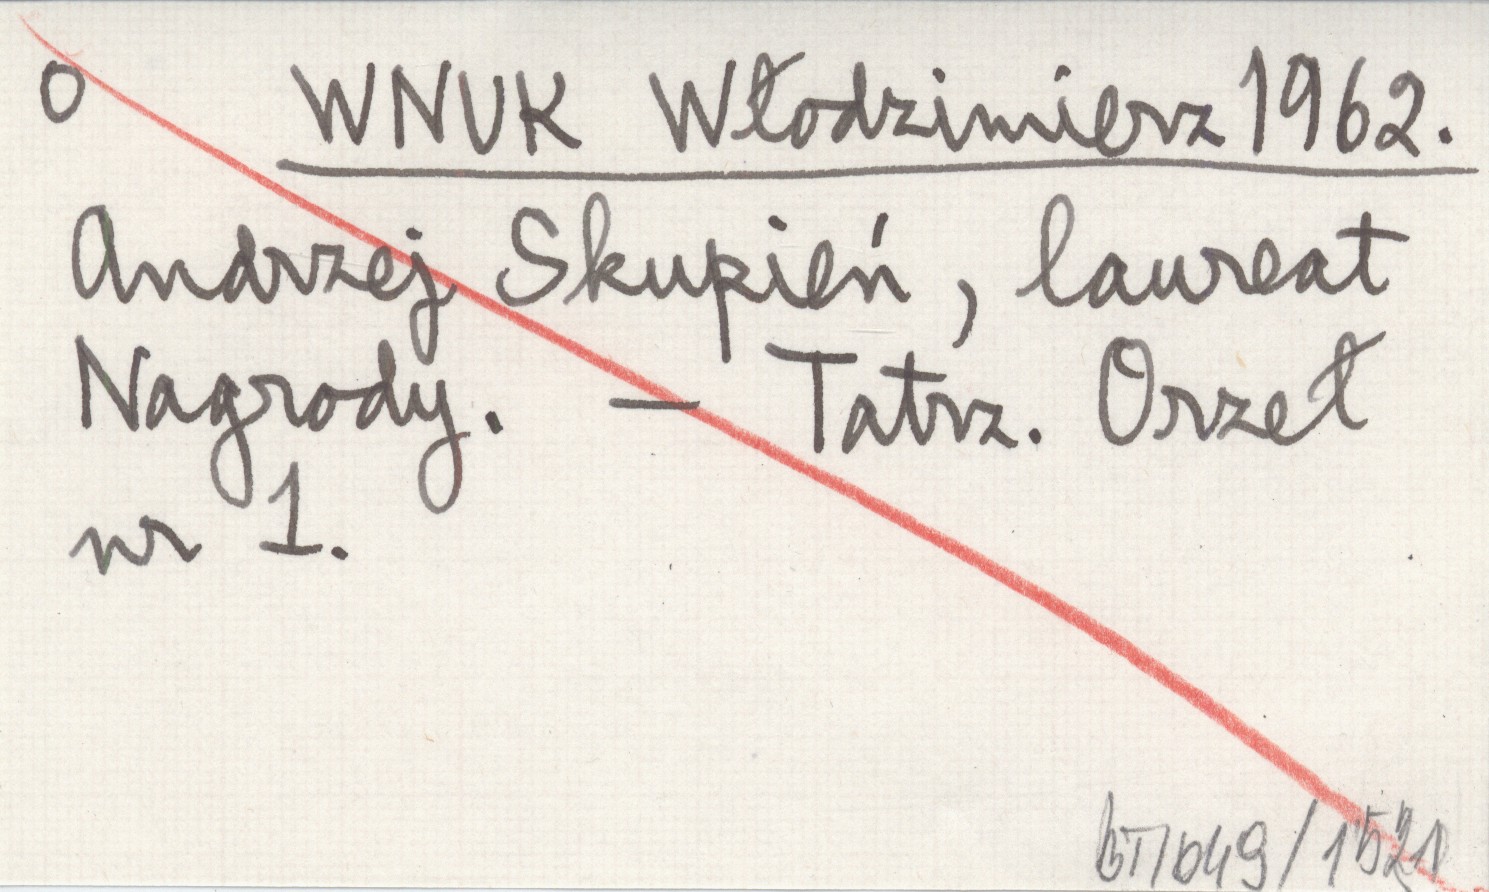 O WNUK Włodzimierz 1962.
Andrzej Skupień, laureat
Nagrody. — Tatrz. Orzeł
nr 1.